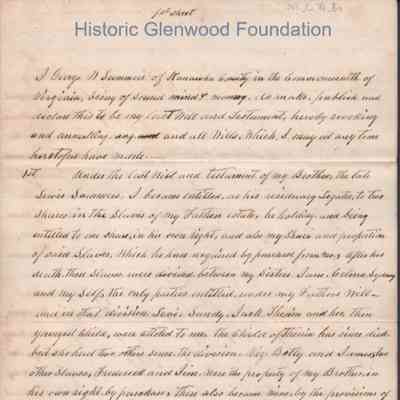 1st sheet
Historic Glenwood Foundation
I George W Summers of Kanawha County in the Commonwealth of
Virginia, being of sound mind & memory, do make, publish and
declare this to be my last Will and Testament, hereby revoking
and annulling any and all Wills, Which, I may at any time
heretofore have made.
1st. Under the last Will and testament of my Brother, the late
Lewis Summers, I became entitled, as his residuary legatee, to two
shares in the Slaves of my Fathers estate, he holding and being
entitled to one share, in his own right, and also the share and proportion
of said Slaves, Which he had acquired by purchase from After his
death these Slaves were divided between my Sisters Jane, Celena,
and my self, the only parties entitled, under my Fathers Will—
and in that division Lewis Sandy, Jack, and her then
youngest child, were allotted to me. the child of has since died
but she had two others since the division. Viz Betty, and
Other Slaves, Frederick and Jim were the property of my Brother, in
his own right by purchase. These also became mine by the provisions of